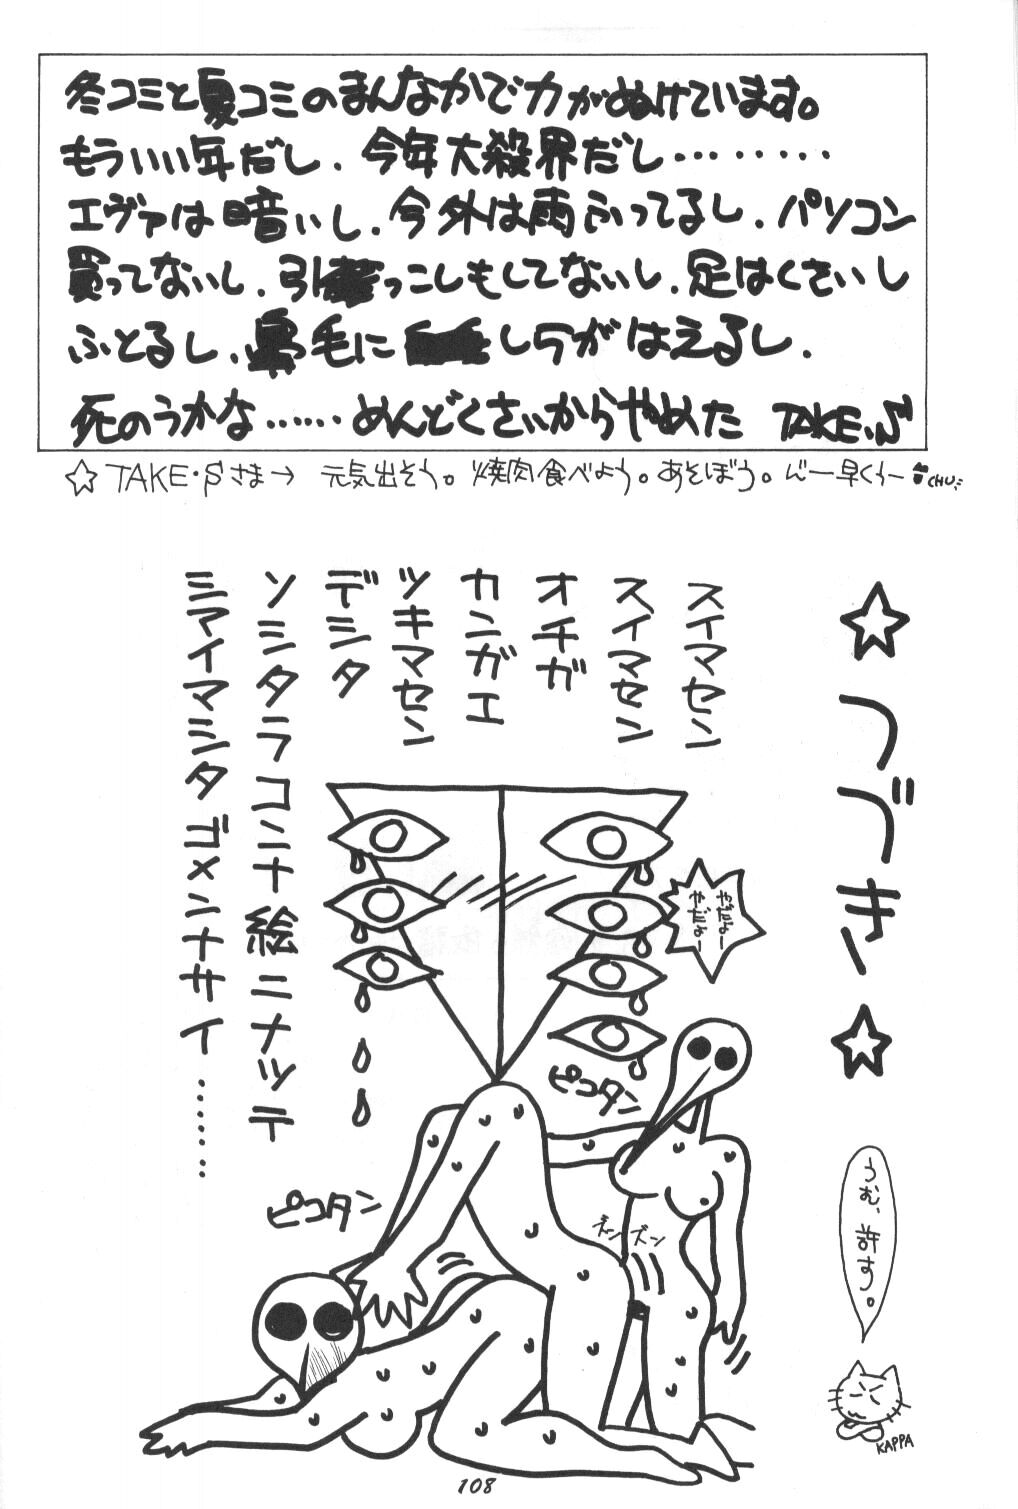 冬コミと夏コミのまんなかで力がぬけています。
もういい年だし、今年大殺界だし………
エヴァは暗いし、今外は雨ふってるし、パソコン
買ってないし、引っこしもしてないし、足はくさいし
ふとるし、鼻毛にしらがはえるし、
死のうかな……めんどくさいからやめた TAKE・S
☆TAKE・Sさま→ 元気出そう。焼肉食べよう。あそぼう。んー早くぅー CHU
☆つづき☆
スイマセン
スイマセン
オチガ
カンガエ
ツキマセン
デシタ
ソシタラコンナ絵ニナッテ
シマイマシタゴメンナサイ……
やだよー
やだよー
ピコタン
ピコタン
ズンズン
うむ、許す。
KAPPA
108